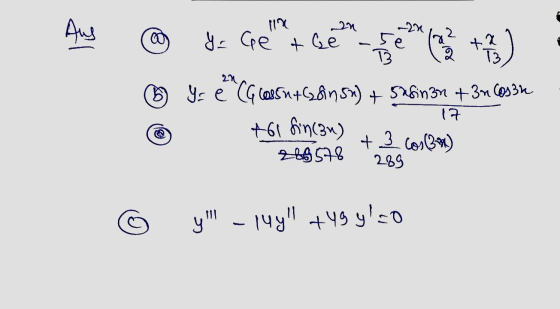 Ans (a) y = C₁e^{11x} + C₂e^{-2x} - 5/13 e^{-2x} (x²/2 + x/13)
(b) y = e^{2x} (C₁cos5x + C₂sin5x) + (5x sin3x + 3x cos3x)/17
+61 sin(3x)/578 + 3/289 cos(3x)
(c) y''' - 14y'' + 49y' = 0